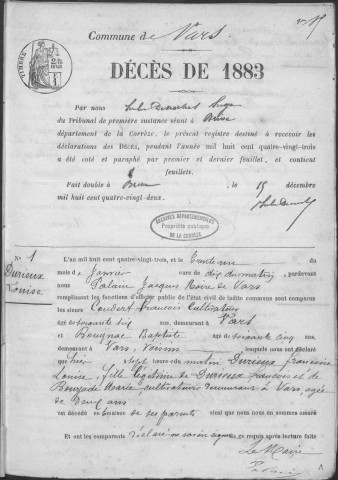 Commune de Vars.
DÉCÈS DE 1883
TIMBRE
Par nous Juge
du Tribunal de première instance séant à Brive
département de la Corrèze, le présent registre destiné à recevoir les
déclarations des Décès, pendant l'année mil huit cent quatre-vingt-trois
a été coté et paraphé par premier et dernier feuillet, et contient
feuillets.
Fait double à Brive le 15 décembre
mil huit cent quatre-vingt-deux.
ARCHIVES DÉPARTEMENTALES
Propriété publique
DE LA CORRÈZE
N° 1
Durieux
Louise
L'an mil huit cent quatre-vingt-trois, et le trente un du
mois de Janvier à dix du matin, pardevant
nous Jacques Maire de Vars
remplissant les fonctions d'officier public de l'état civil de ladite commune sont comparus
les sieurs Coudert François Cultivateur
âgé de soixante six ans, demeurant à Vars
et Baptiste âgé de soixante cinq ans,
demeurant à Vars, voisins lesquels nous ont déclaré
que hier sept heures du matin Durieux françoise
Louise, fille légitime de Durieux françois et de
Marie, cultivateurs demeurant à Vars, agée
de deux ans
est décédée en maison de ses parents ainsi que nous nous en sommes assuré
Et ont les comparants déclaré ne savoir signer de ce requis après lecture faite
Le Maire